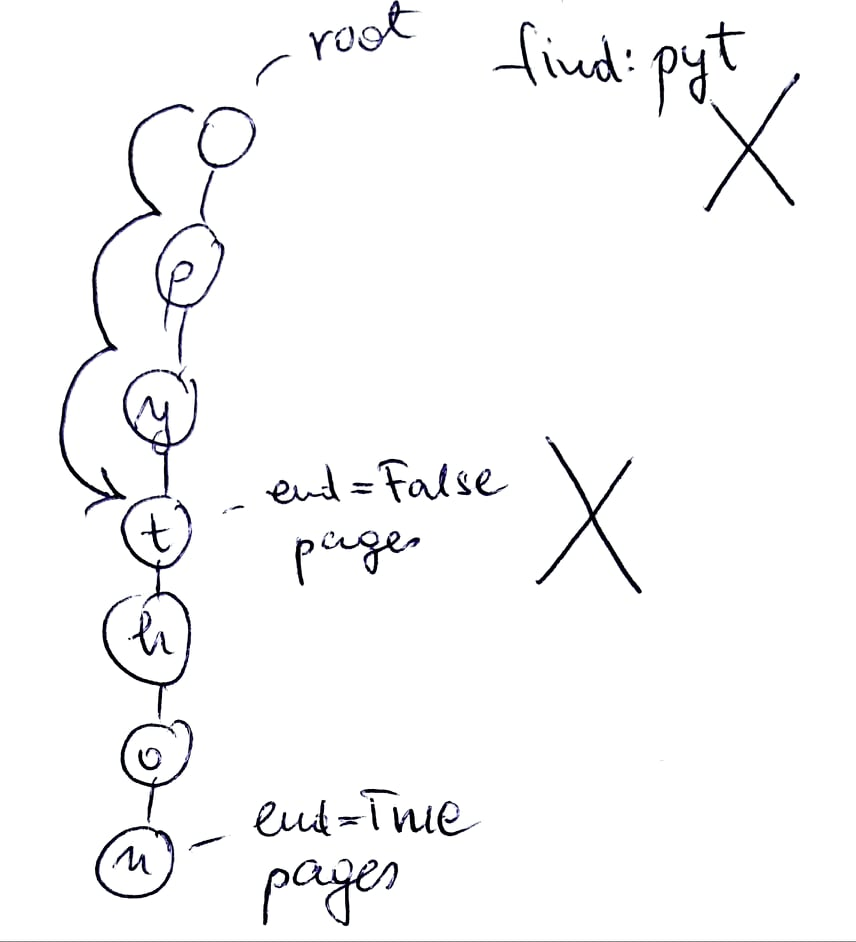 root
find: pyt
p
y
t
end=False
pages
h
o
n
end=True
pages